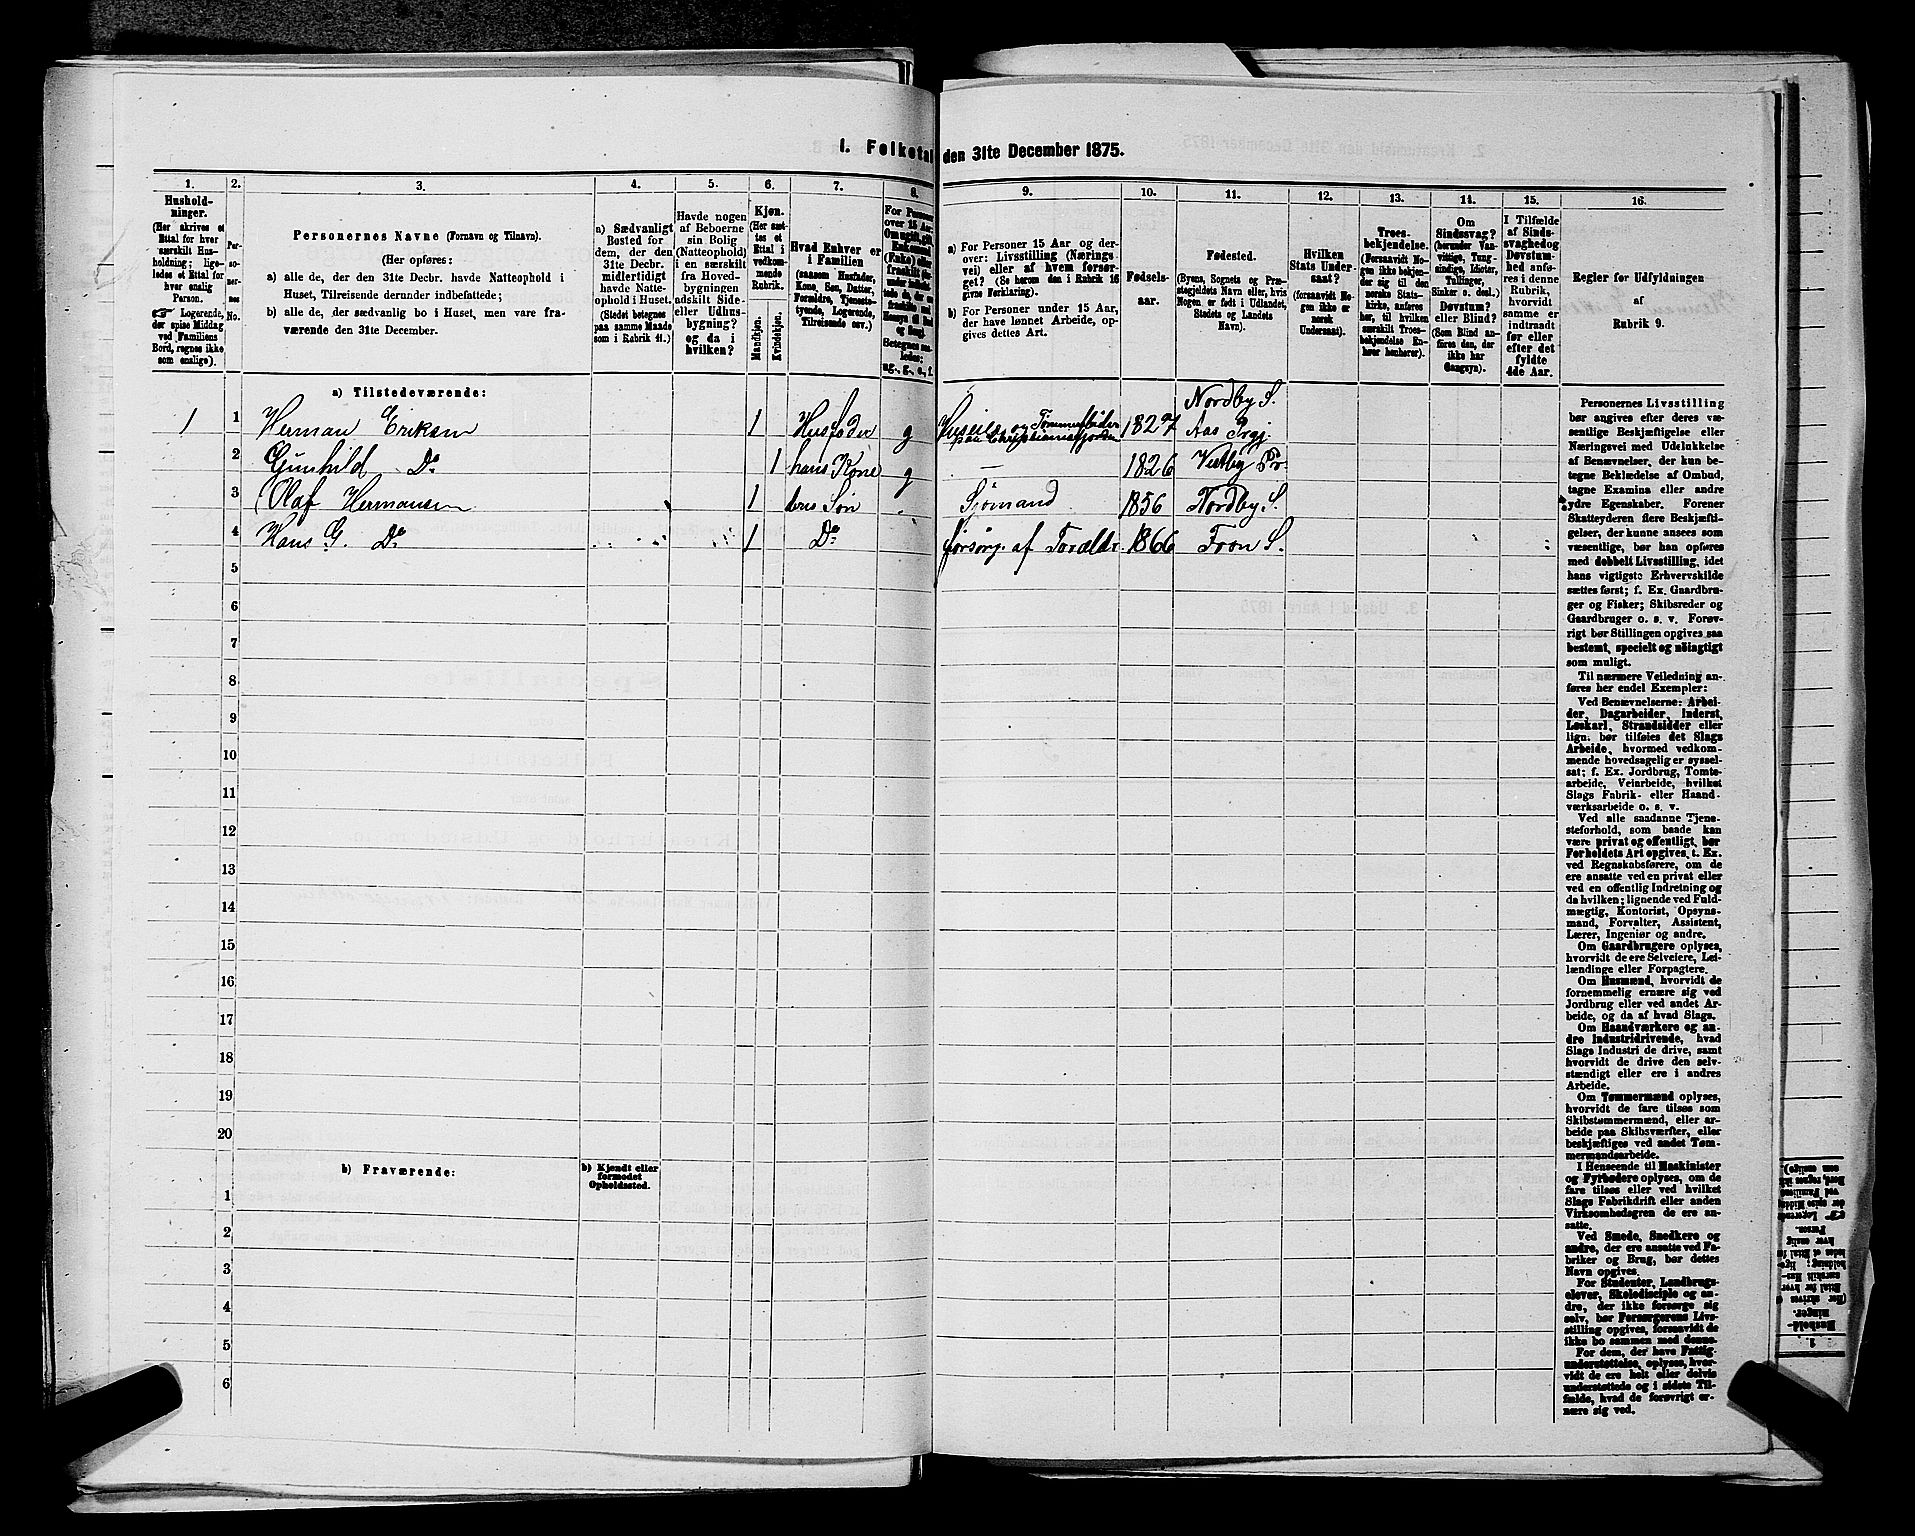 1. Folketal den 31te December 1875.
1.
2.
3.
4.
5.
6.
7.
8.
9.
10.
11.
12.
13.
14.
15.
16.
Hushold-
ninger.
(Her skrives et
Ettal for hver
særskilt Hus-
holdning; lige-
ledes et Ettal for
hver enslig
Person.
☞ Logerende,
der spise Middag
ved Familiens
Bord, regnes ikke
som enslige).
Per-
so-
ner-
nes
No.
Personernes Navne (Fornavn og Tilnavn).
(Her opføres:
a) alle de, der den 31te Decbr. havde Natteophold i
Huset, Tilreisende derunder indbefattede;
b) alle de, der sædvanlig bo i Huset, men vare fra-
værende den 31te December.
a) Sædvanligt
Bosted for
dem, der den
31te Decbr.
midlertidigt
havde Natte-
ophold i Huset.
(Stedet betegnes
paa samme Maade
som i Rubrik 11.)
Havde nogen
af Beboerne
sin Bolig
(Natteophold)
i en særskilt
fra Hoved-
bygningen
adskilt Side-
eller Udhus-
bygning?
og da i
hvilken?
Kjøn.
(Her sæt-
tes et
Ettal i
vedkom-
mende
Rubrik.
Mandkjøn.
Kvindekjøn.
Hvad Enhver er
i Familien
(saasom Husfader,
Kone, Søn, Datter,
Forældre, Tjeneste-
tyende, Logerende,
Tilreisende osv.)
For Personer
over 15 Aar:
Om ugift, gift,
Enkemand
(Enke) eller
fraskilt
Betegnes saa-
ledes:
ug., g., e., f.
a) For Personer 15 Aar og der-
over: Livsstilling (Nærings-
vei) eller af hvem forsør-
get. (Se herom den i Rubrik 16
givne Forklaring).
b) For Personer under 15 Aar,
der have lønnet Arbeide, op-
gives dettes Art.
Fødsels-
aar.
Fødested.
(Byens, Sognets og Præ-
stegjeldets Navn eller, hvis
Nogen er født i Udlandet,
Stedets og Landets
Navn).
Hvilken
Stats Under-
saat?
(forsaavidt No-
gen ikke er
norsk
Undersaat).
Troes-
bekjendelse.
(Forsaavidt No-
gen ikke bekjen-
der sig til den
norske Stats-
kirke, anføres
her, til hvilken
særskilt Troes-
bekjendelse En-
hver henhører).
Om
Sindssvag?
(herunder Van-
vittige, Tung-
sindige, Idioter,
Tullinger,
Sinker o. desl.)
Døvstum?
eller Blind?
(Som Blind an-
føres den, der
ikke har
Gangsyn).
I Tilfælde
af Sinds-
svaghed og
Døvstum-
hed anfø-
res i denne
Rubrik,
hvorvidt
samme er
indtraadt
før eller
efter det
fyldte
4de Aar.
Regler for Udfyldningen
af
Rubrik 9.
a) Tilstedeværende:
1 1 Herman Eriksen 1 Husfader g Huseier og Tømmerflåder paa Christianiafjorden 1827 Nordby S. Aas Prgj
2 Gunhild Do 1 hans Kone g — 1826 Vestby Pr.
3 Olaf Hermansen 1 Søn Sjømand 1856 Nordby S.
4 Hans G. Do 1 Do forsørg. af Foræld. 1866 Fron S.
5
6
7
8
9
10
11
12
13
14
15
16
17
18
19
20
b) Fraværende:
b) Kjendt eller
formodet
Opholdssted.
1
2
3
4
5
6
Personernes Livsstilling
bør angives efter deres væ-
sentlige Beskjæftigelse eller
Næringsvei med Udelukkelse
af Benævnelser, der kun be-
tegne Beklædelse af Ombud,
tagne Examina eller andre
ydre Egenskaber. Forener
Skatteyderen flere Beskjæfti-
gelser, der kunne ansees som
væsentlige, bør han opføres
med dobbelt Livsstilling, idet
hans vigtigste Erhvervskilde
sættes først; f. Ex. Gaardbru-
ger og Fisker; Skibsreder og
Gaardbruger o. s. v. Forøv-
rigt bør Stillingen opgives saa
bestemt, specielt og nöiagtigt
som muligt.
Til nærmere Veiledning an-
føres her endel Exempler:
Ved Benævnelserne: Arbei-
der, Dagarbeider, Inderst,
Løskarl, Strandsidder eller
lign. bør tilføies det Slags
Arbeide, hvormed vedkom-
mende hovedsagelig er syssel-
sat; f. Ex. Jordbrug, Tomte-
arbeide, Veiarbeide, hvilket
Slags Fabrik- eller Haand-
værksarbeide o. s. v.
Ved alle saadanne Tjene-
steforhold, som baade kan
være privat og offentligt, bør
Forholdets Art opgives, f. Ex.
ved Regnskabsførere, om de
ere ansatte ved en privat eller
ved en offentlig Indretning og
da hvilken; lignende ved Fuld-
mægtig, Kontorist, Opsyns-
mand, Forvalter, Assistent,
Lærer, Ingeniør og andre.
Om Gaardbrugere oplyses,
hvorvidt de ere Selveiere, Lei-
lændinge eller Forpagtere.
Om Husmænd, hvorvidt de
fornemmelig ernære sig ved
Jordbrug eller ved andet Ar-
beide, og da af hvad Slags.
Om Haandværkere og an-
dre Industridrivende, hvad
Slags Industri de drive, samt
hvorvidt de drive den selv-
stændigt eller ere i andres
Arbeide.
Om Tømmermænd oplyses,
hvorvidt de fare tilsøs som
Skibstømmermænd, eller ar-
beide paa Skibsværfter, eller
beskjæftiges ved andet Tøm-
mermandsarbeide.
I Henseende til Maskinister
og Fyrbødere oplyses, om de
fare tilsøs eller ved hvilket
Slags Fabrikdrift eller anden
Virksomhedsgren de ere an-
satte.
Ved Smede, Snedkere og
andre, der ere ansatte ved Fa-
briker og Brug, bør dettes
Navn opgives.
For Studenter, Landbrugs-
elever, Skoledisciple og an-
dre, der ikke forsørge sig
selv, bør Forsørgerens Livs-
stilling opgives, forsaavidt de
ikke bo sammen med denne.
For dem, der have Fattig-
understøttelse, oplyses, hvor-
vidt de ere helt eller delvis
understøttede og i sidste Til-
fælde, hvad de forøvrigt er-
nære sig ved.